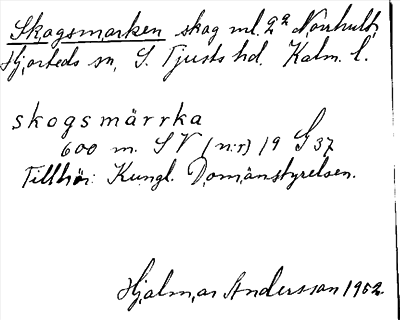 Skogsmarken skog ml. 2ª Norrhult,
Hjorteds sn, S. Tjusts hd. Kalm. l.
skogsmärrka
600 m. SV (n:r) 19 G 37
Tillhör: Kungl. Domänstyrelsen.
Hjalmar Andersson 1952.